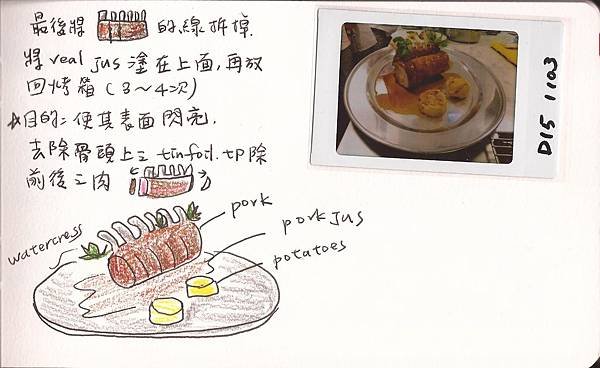 最後將 的線拆掉.
將 veal jus 塗在上面, 再放
回烤箱 (3~4次)
目的: 使其表面閃亮.
去除骨頭上之 tinfoil. 切除
前後之肉
D15 1103
watercress
pork
pork JUS
potatoes